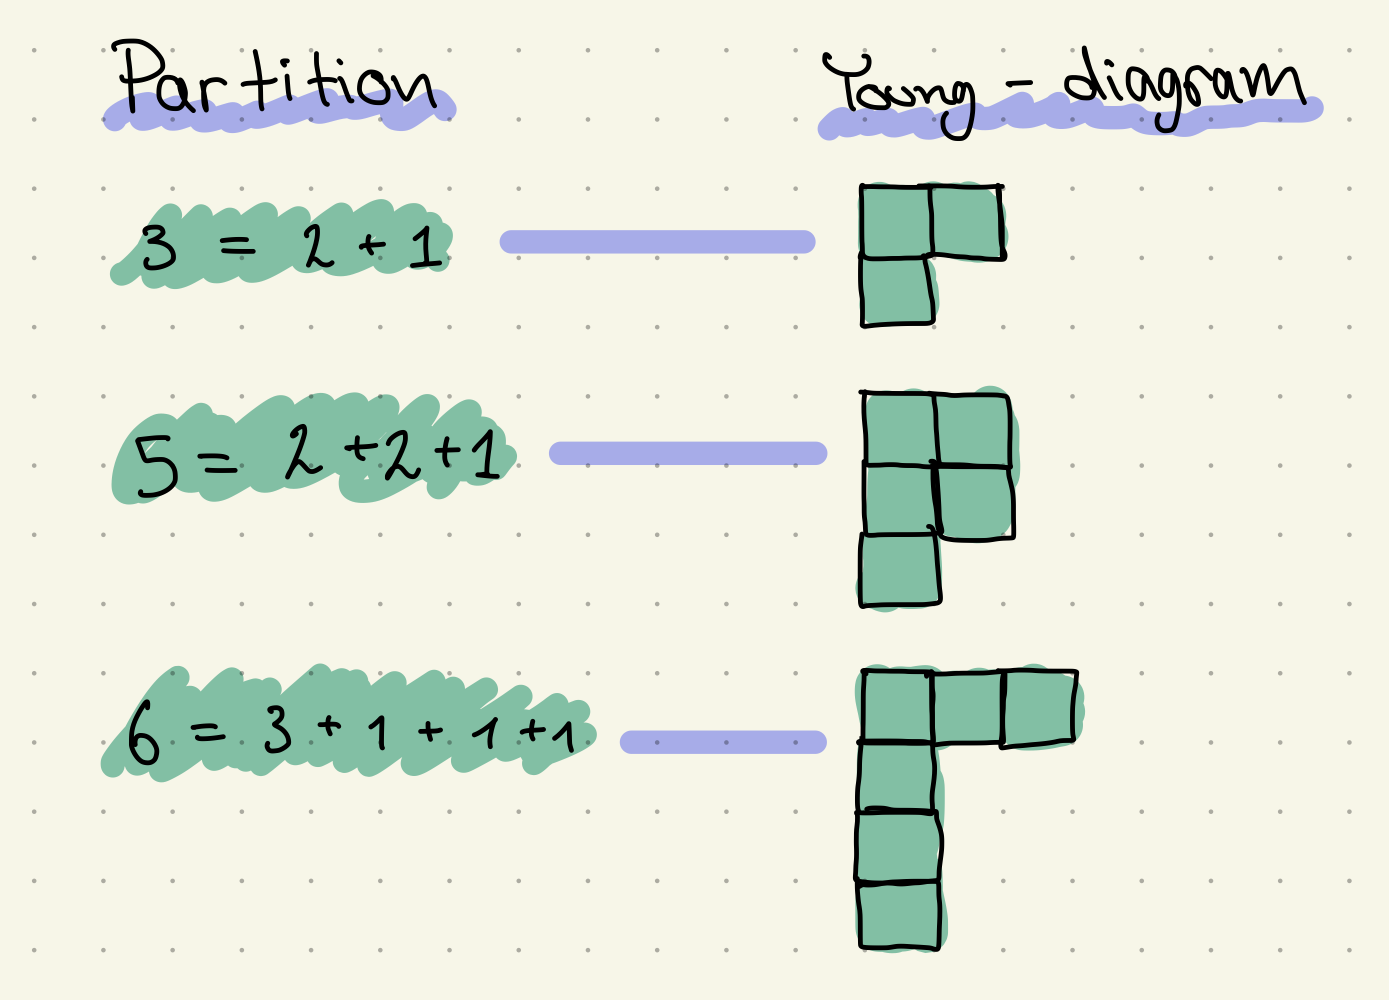 Partition Young-diagram
3 = 2 + 1
5 = 2 + 2 + 1
6 = 3 + 1 + 1 + 1